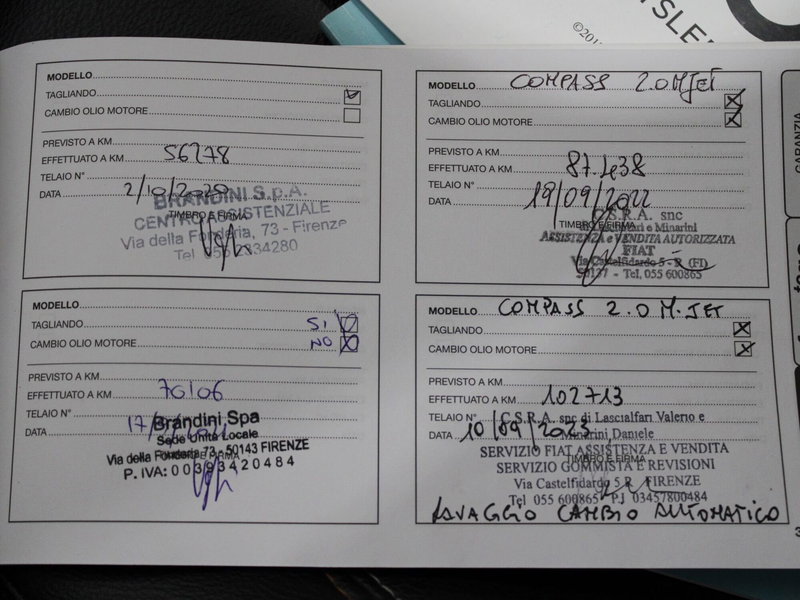 MODELLO
TAGLIANDO
CAMBIO OLIO MOTORE
PREVISTO A KM
EFFETTUATO A KM 56278
TELAIO N°
DATA 2/10/2020
BRANDINI S.p.A.
CENTRO ASSISTENZIALE
TIMBRO E FIRMA
Via della Fonderia, 73 - Firenze
MODELLO COMPASS 2.0 MJET
TAGLIANDO
CAMBIO OLIO MOTORE
PREVISTO A KM
EFFETTUATO A KM 87.438
TELAIO N°
DATA 19/09/2022
C.S.R.A. snc
TIMBRO E FIRMA
Minarini
ASSISTENZA e VENDITA AUTORIZZATA
FIAT
Via Castelfidardo 5 R (FI)
50137 - Tel. 055 600865
MODELLO
TAGLIANDO SI
CAMBIO OLIO MOTORE NO
PREVISTO A KM
EFFETTUATO A KM 70106
TELAIO N°
DATA 17/
Brandini Spa
Sede Unità Locale
Via della Fonderia 73 - 50143 FIRENZE
P. IVA: 00393420484
MODELLO COMPASS 2.0 M.JET
TAGLIANDO
CAMBIO OLIO MOTORE
PREVISTO A KM
EFFETTUATO A KM 102713
TELAIO N°
DATA 10/09/2023
C.S.R.A. snc di Lascialfari Valerio e
Minarini Daniele
TIMBRO E FIRMA
SERVIZIO FIAT ASSISTENZA E VENDITA
SERVIZIO GOMMISTA E REVISIONI
Via Castelfidardo 5 R FIRENZE
Tel 055 600865 P.I 03457800484
LAVAGGIO CAMBIO AUTOMATICO
GARANZIA